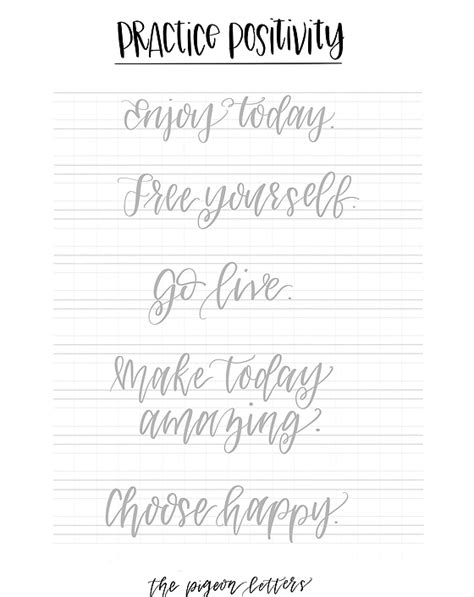 PRACTICE POSITIVITY
Enjoy today.
Free yourself.
Go live.
Make today
amazing.
Choose happy.
the pigeon letters